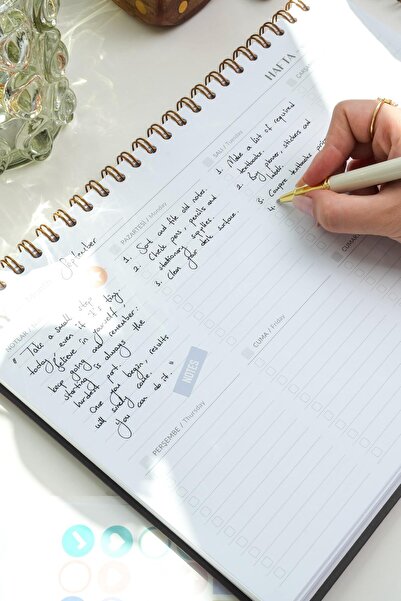 HAFTA
September
NOTLAR /
" Take a small step
today, even if it's tiny.
Believe in yourself,
keep going and remember:
starting is always the
hardest part.
Once you begin, results
will surely come.
You can do it. "
NOTES
PAZARTESİ / Monday
1. Sort and file old notes.
2. Check pens, pencils and
stationary supplies.
3. Clean your desk surface
SALI / Tuesday
1. Make a list of required
textbooks.
2. Buy planner, stickers and
labels.
3. Compare textbooks
4.
ÇARŞ
PERŞEMBE / Thursday
CUMA / Friday
CUMAR